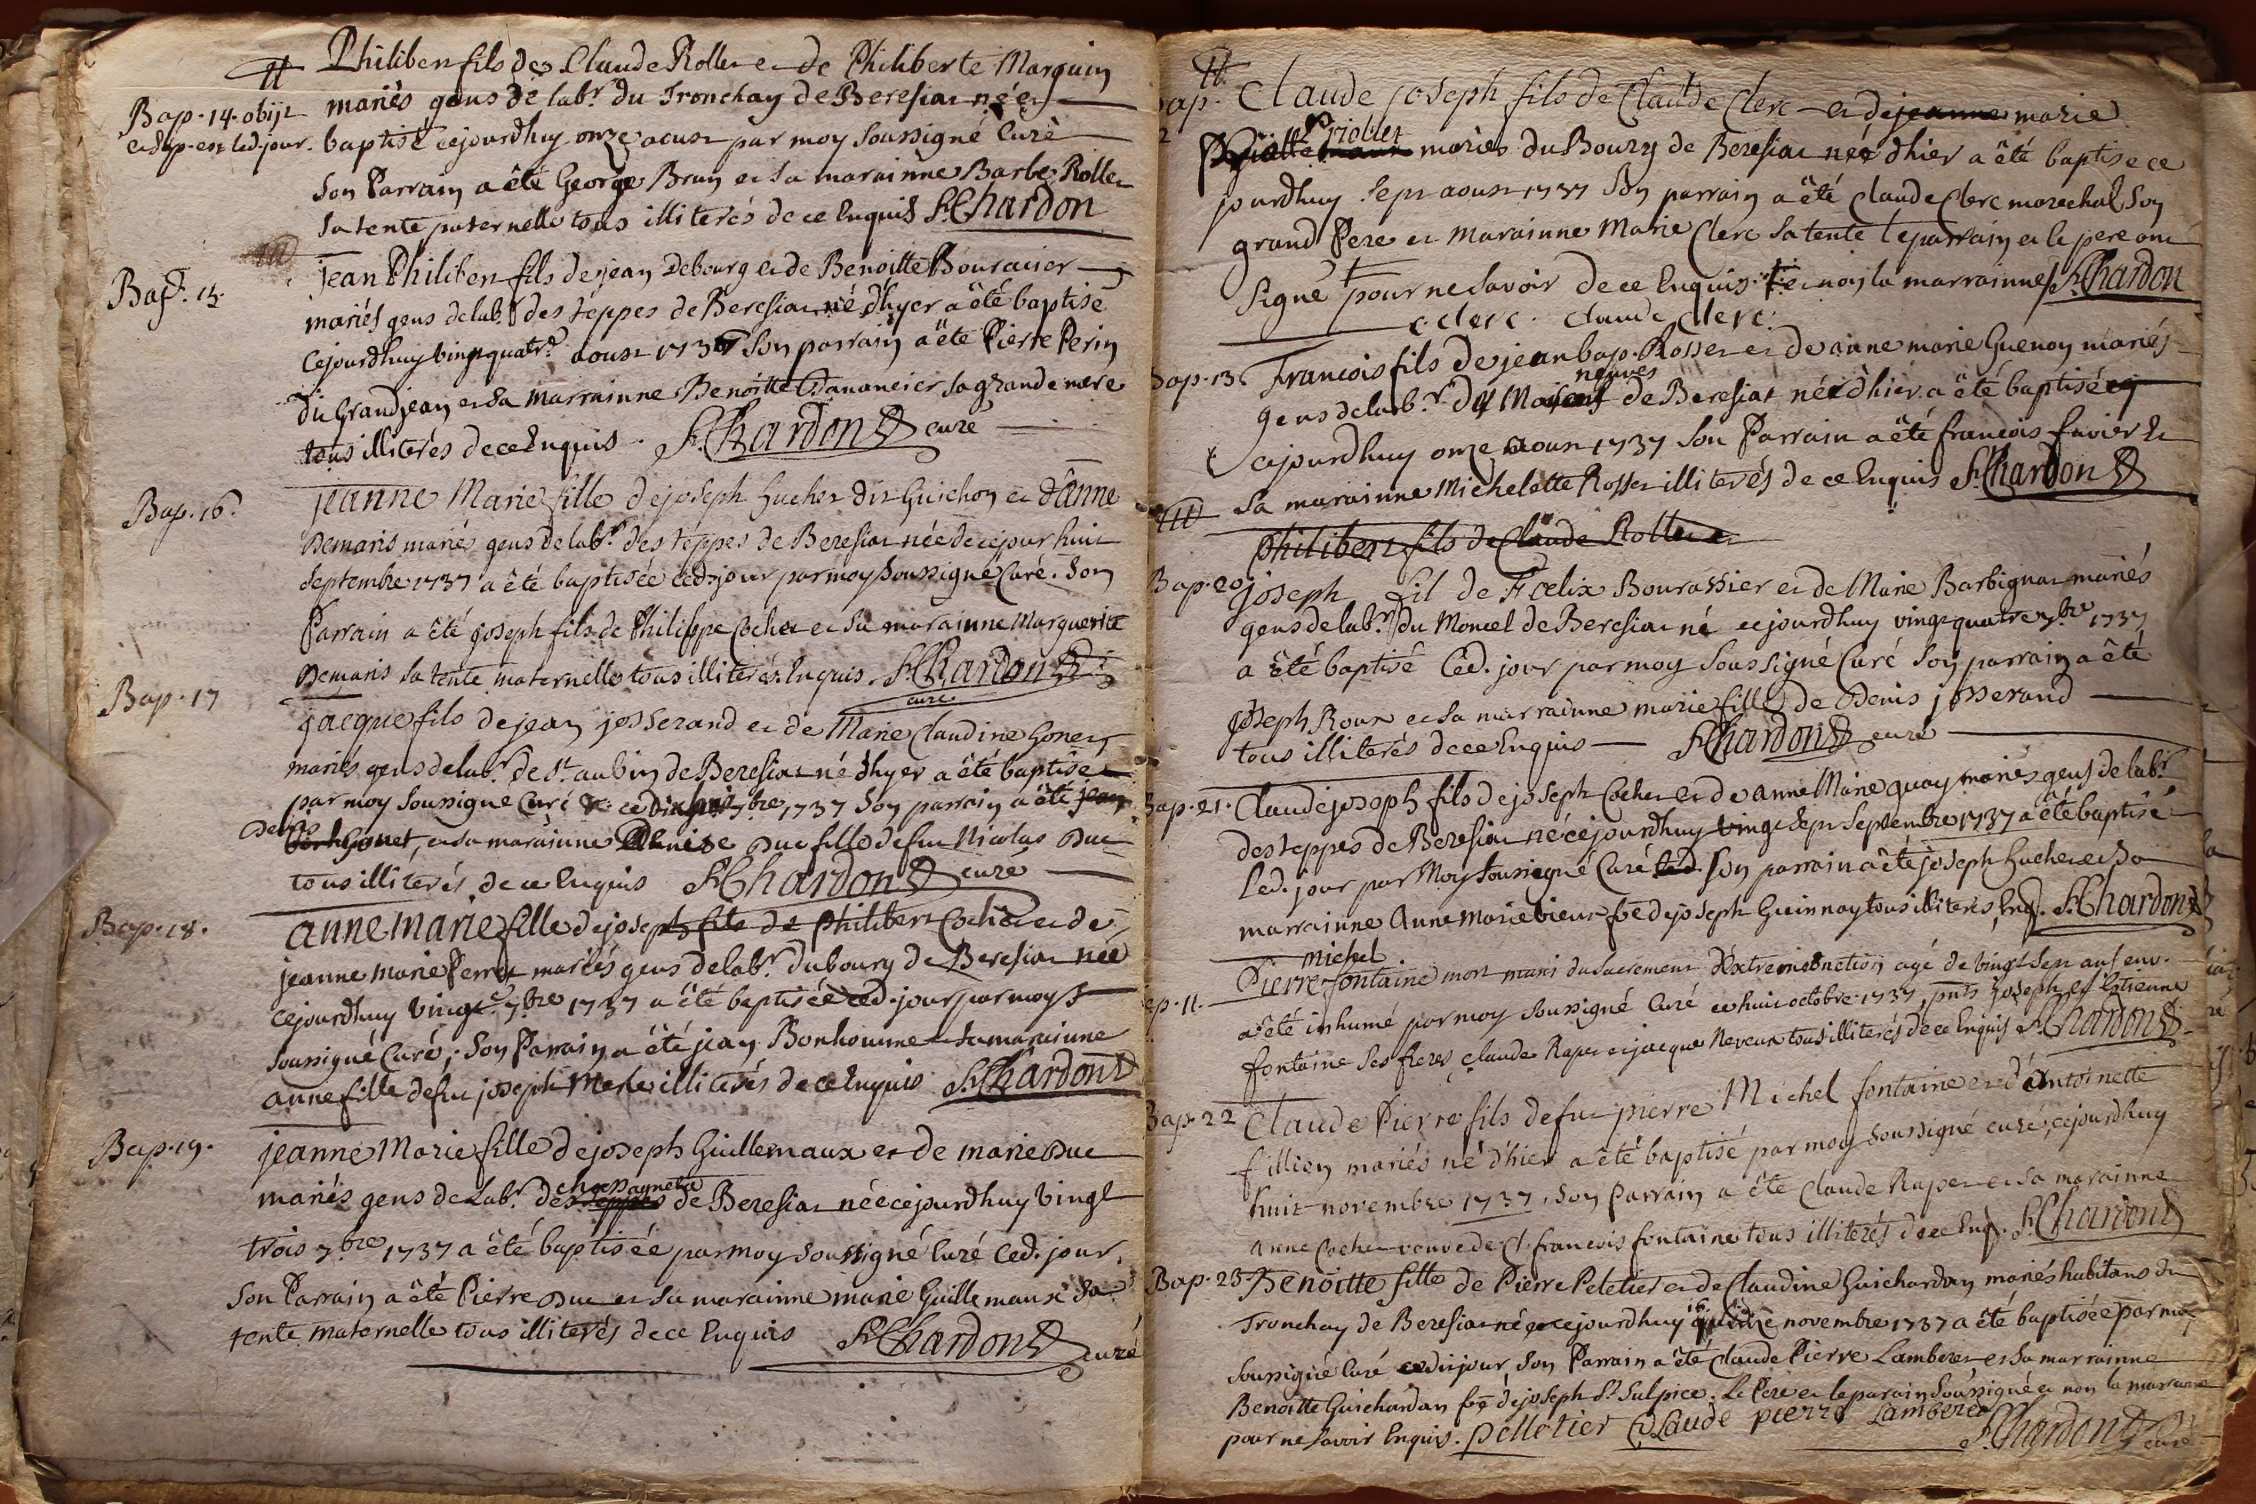 Philibert fils de Claude Rollet et de Philiberte Marguin
Bap. 14. obijt mariés gens de lab.r du Tronchay de Beresiat né et
et Sep. est led. jour. baptisé cejourdhuy onze aoust par moy Soussigné Curé
Son Parrain a êté George Brun et sa marainne Barbe Rollet
Sa tente paternelle tous illiterés de ce Enquis F. Chardon
Bap. 15. jean Philibert fils de jean Debourg et de Benoitte Bouracier
mariés gens de lab.r des téppes de Beresiat né d'hyer a êté baptisé
Cejourdhuy vingtquatre aoust 1737 Son parrain a êté Pierre Perin
du Grandjean et Sa Marrainne Benoitte Dananeier sa grande mere
tous illiterés de ce Enquis. F. Chardon curé
Bap. 16. jeanne Marie fille de joseph Hucher dit Guichon et d'Anne
Demaris mariés gens de lab.r des téppes de Beresiat née de ce jour huit
Septembre 1737 a êté baptisée ced. jour par moy Soussigné Curé. Son
Parrain a êté joseph fils de Philippe Cocher et Sa marainne Marguerite
Demaris Sa tente maternelle tous illiterés Enquis. F. Chardon
curé
Bap. 17 jacque fils de jean josserand et de Marie Claudine Gonet
mariés gens de lab.r de S.t aubin de Beresiat né d'hyer a êté baptisé
par moy Soussigné Curé ce 7.bre 1737 Son parrain a êté jean
Denis Gonet, et sa marainne Denise Duc fille de feu Nicolas Duc
tous illiterés de ce Enquis F. Chardon curé
Bap. 18. anne marie fille de joseph fils de Philibert Cocher et de
jeanne Marie Perret mariés gens de lab.r du bourg de Beresiat née
cejourdhuy vingt 7.bre 1737 a êté baptisée ced. jour par moy S
soussigné Curé; Son Parrain a êté jean Bonhomme et Sa marainne
anne fille de feu joseph Merle illiterés de ce Enquis F. Chardon
Bap. 19. jeanne Marie fille de joseph Guillemaux et de marie Duc
chassagnes
mariés gens de Lab.r des téppes de Beresiat née cejourdhuy vingt
trois 7.bre 1737 a êté baptisée par moy soussigné Curé Ced. jour,
Son Parrain a êté Pierre Duc et Sa marainne marie Guillemaux Sa
tente maternelle tous illiterés de ce Enquis F. Chardon
curé
Bap. Claude joseph fils de Claude Clerc et de jeanne marie
Prioblet
mariés du Bourg de Beresiat né d'hier a êté baptisé ce
jourdhuy Sept aoust 1737 Son parrain a êté Claude Clerc marechal Son
grand Pere et Marainne Marie Clerc Sa tente le parrain et le pere ont
Signé pour ne Savoir de ce Enquis. et non la marrainne F. Chardon
C. Clerc. Claude Clerc.
Bap. 13. Francois fils de jean bap. Rosset et de anne marie Guenoy mariés
neuves
gens de lab.r du Maisons de Beresiat né d'hier a êté baptisé
cejourdhuy onze aoust 1737 Son Parrain a êté francois favier et
Sa marainne Michelette Rosset illiterés de ce Enquis F. Chardon
Philibert fils de Claude Rollet et
Bap. 20. joseph fil de Foelix Bourassier et de Marie Barbignat mariés
gens de lab.r du Moncel de Beresiat né cejourdhuy vingtquatre 7.bre 1737
a êté baptisé Ced. jour par moy Soussigné Curé Son parrain a êté
joseph Roux et Sa marrainne marie fille de Denis josserand
tous illiterés de ce Enquis F. Chardon curé
Bap. 21. Claude joseph fils de joseph Cocher et de anne Marie quay mariés gens de lab.r
des téppes de Beresiat né cejourdhuy vingt Sept Septembre 1737 a êté baptisé
Led. jour par Moy Soussigné Curé led. Son parrain a êté joseph Hucher et Sa
marrainne Anne Marie vieux fe de joseph Guinnoy tous illiterés Enq. F. Chardon
michel
Sep. 11. Pierre fontaine mort muni du Sacrement d'Extremeonction agé de vingt Sept ans env.
a êté inhumé par moy Soussigné Curé ce huit octobre 1737, pnts joseph et Estienne
fontaine Ses freres, Claude Rapet et jacque Neveux tous illiterés de ce Enquis F. Chardon
Bap. 22 Claude Pierre fils de feu pierre Michel fontaine et d'Antoinette
fillion mariés né d'hier a êté baptisé par moy Soussigné curé, cejourdhuy
huit novembre 1737, Son Parrain a êté Claude Rapet et Sa marainne
anne Cocher veuve de Cl. francois fontaine tous illiterés de ce Enq. F. Chardon
Bap. 23 Benoitte fille de Pierre Peletier et de Claudine Guichardan mariés habitans du
Tronchay de Beresiat née cejourdhuy novembre 1737 a êté baptisée par moy
Soussigné Curé cedit jour Son Parrain a êté Claude Pierre Lamberet et Sa marrainne
Benoitte Guichardan fe de joseph S.t Sulpice. Le Pere et le parain Soussigné et non la marrainne
pour ne Savoir Enquis. pelletier Claude pierre Lamberet
F. Chardon curé